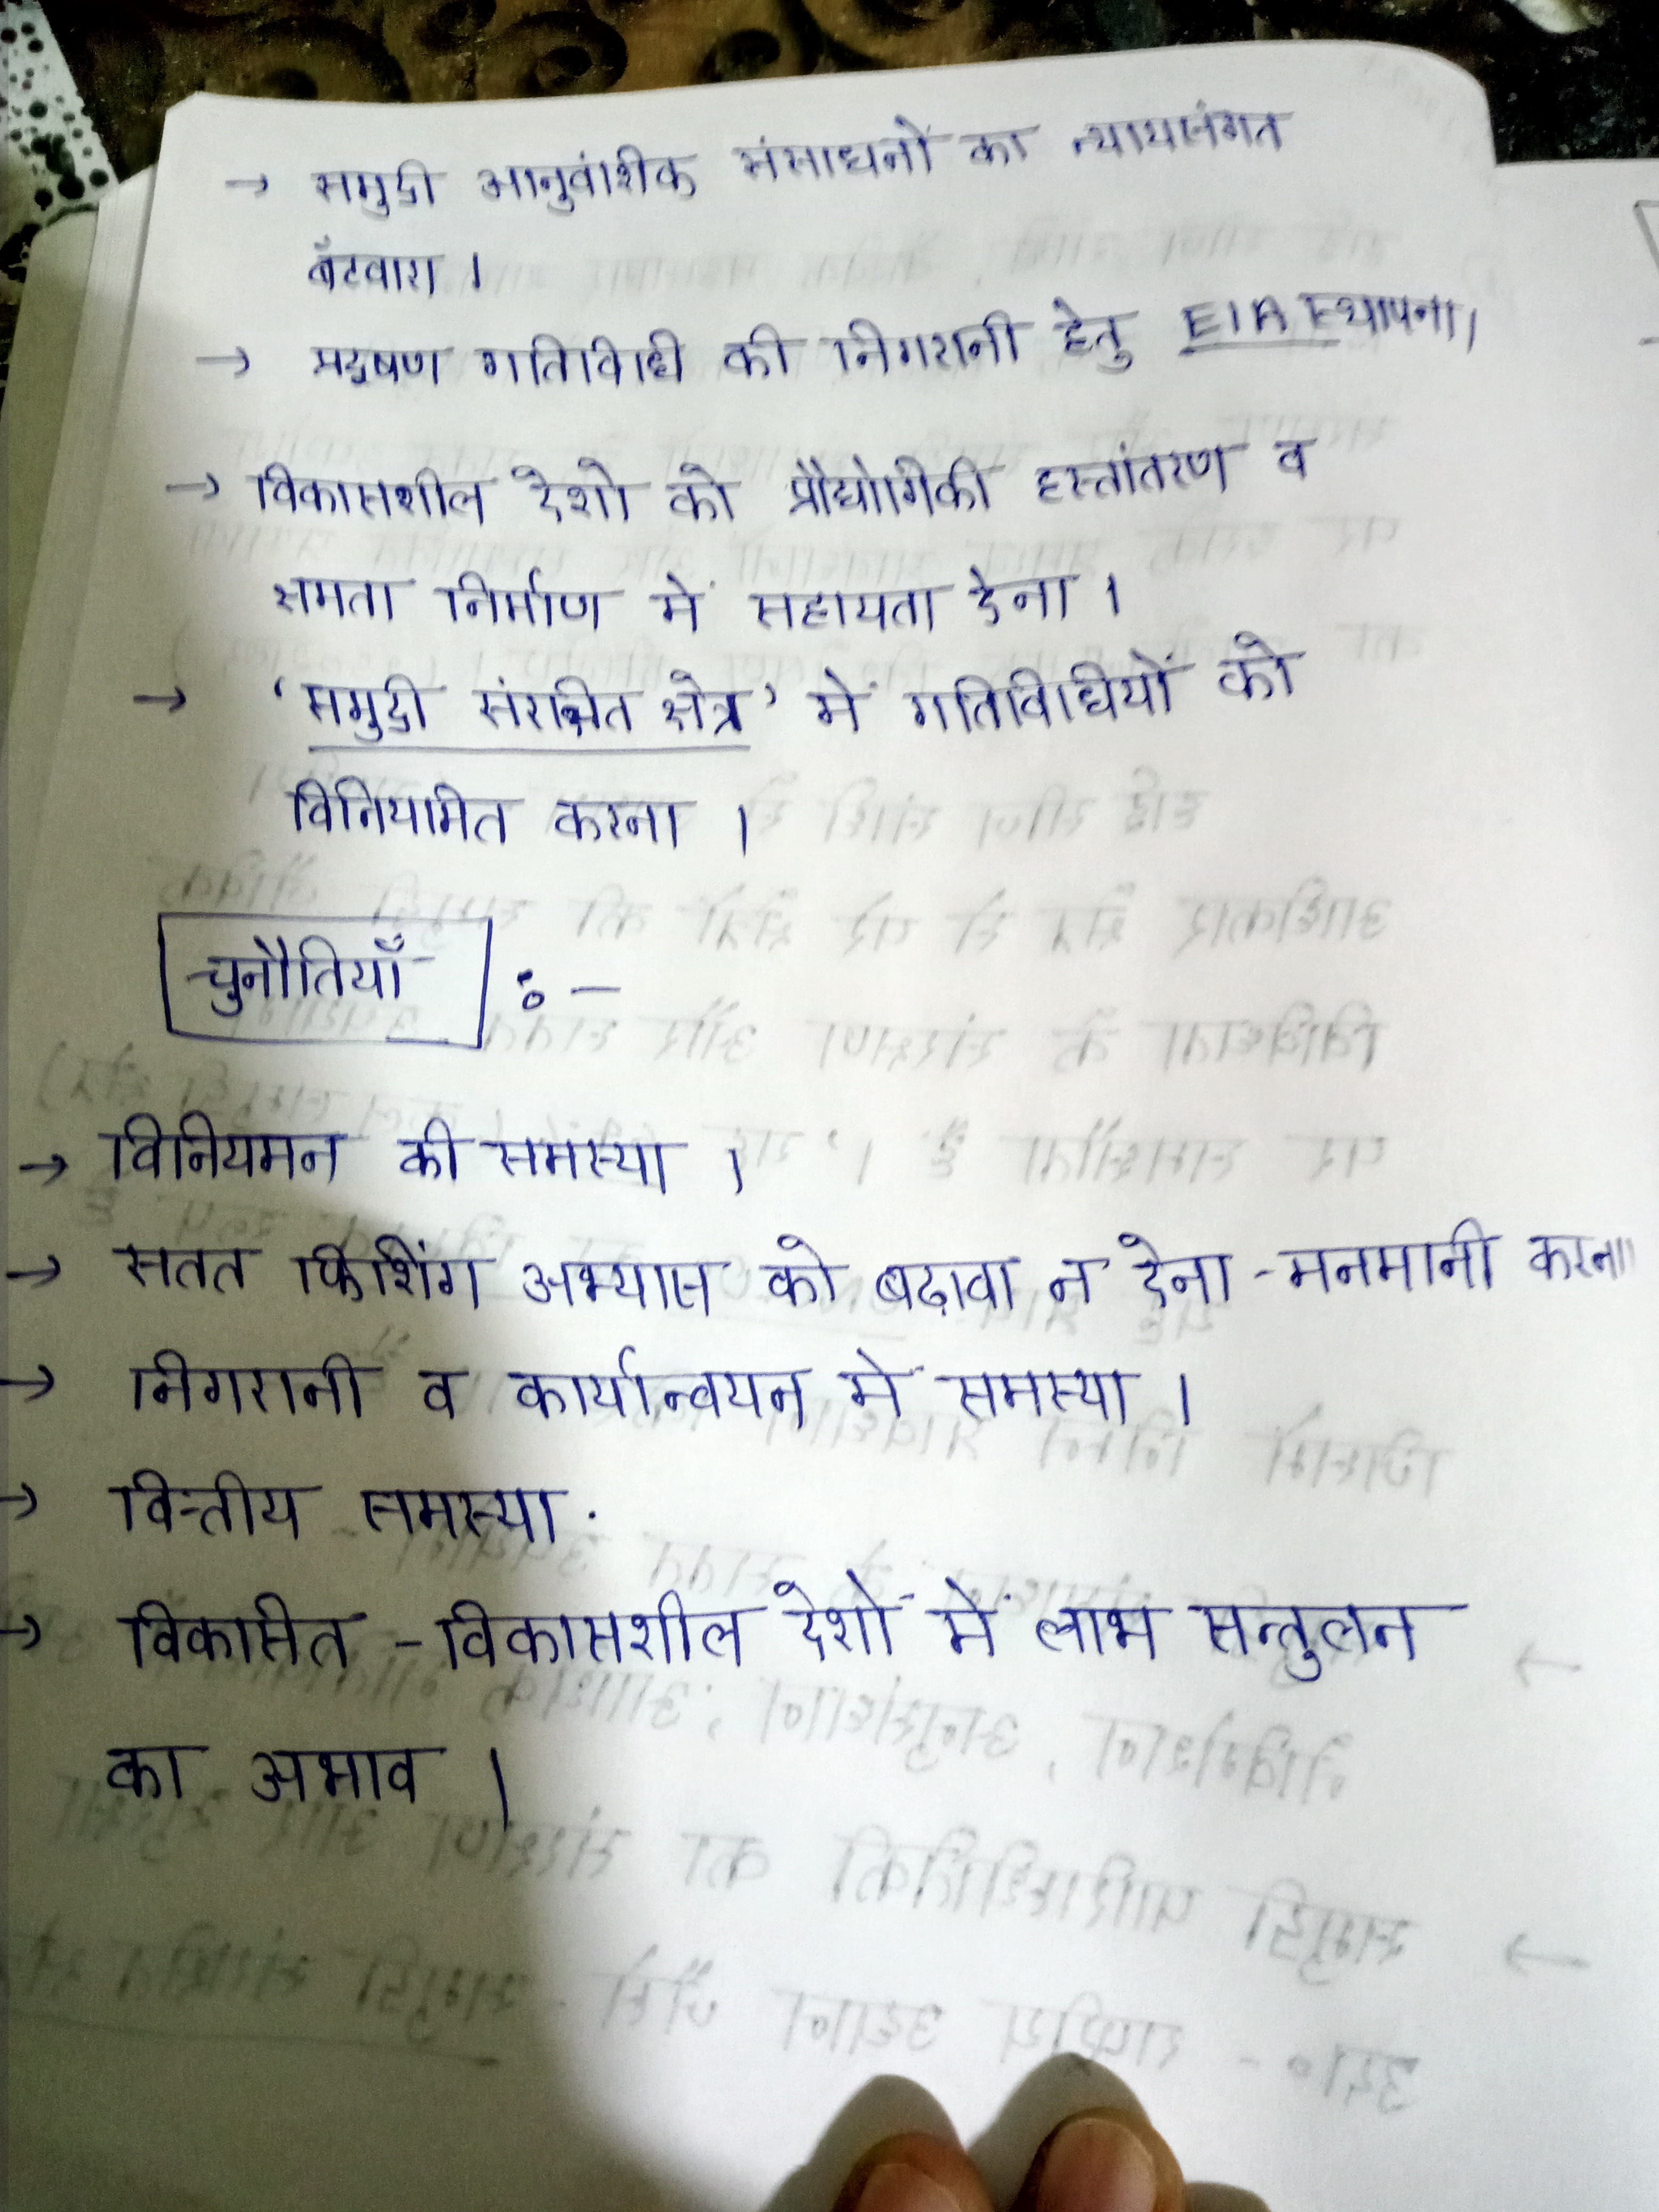 → समुद्री आनुवांशीक संसाधनों का न्यायसंगत
बँटवारा ।
→ प्रदूषण गतिविधी की निगरानी हेतु EIA स्थापना।
→ विकासशील देशो को प्रौद्योगिकी हस्तांतरण व
क्षमता निर्माण में सहायता देना ।
→ 'समुद्री संरक्षित क्षेत्र' में गतिविधियों को
विनियामित करना ।
चुनौतियाँ :-
→ विनियमन की समस्या ।
→ सतत फिशिंग अभ्यास को बढ़ावा न देना - मनमानी करना
→ निगरानी व कार्यान्वयन मे समस्या ।
→ वित्तीय समस्या .
→ विकासित - विकासशील देशो में लाभ सन्तुलन
का अभाव ।